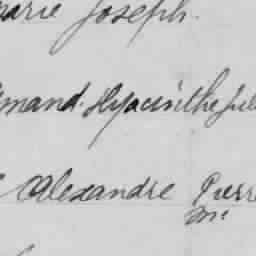 marie Joseph.
mand. Hyacinthe Jul
Alexandre Pierre